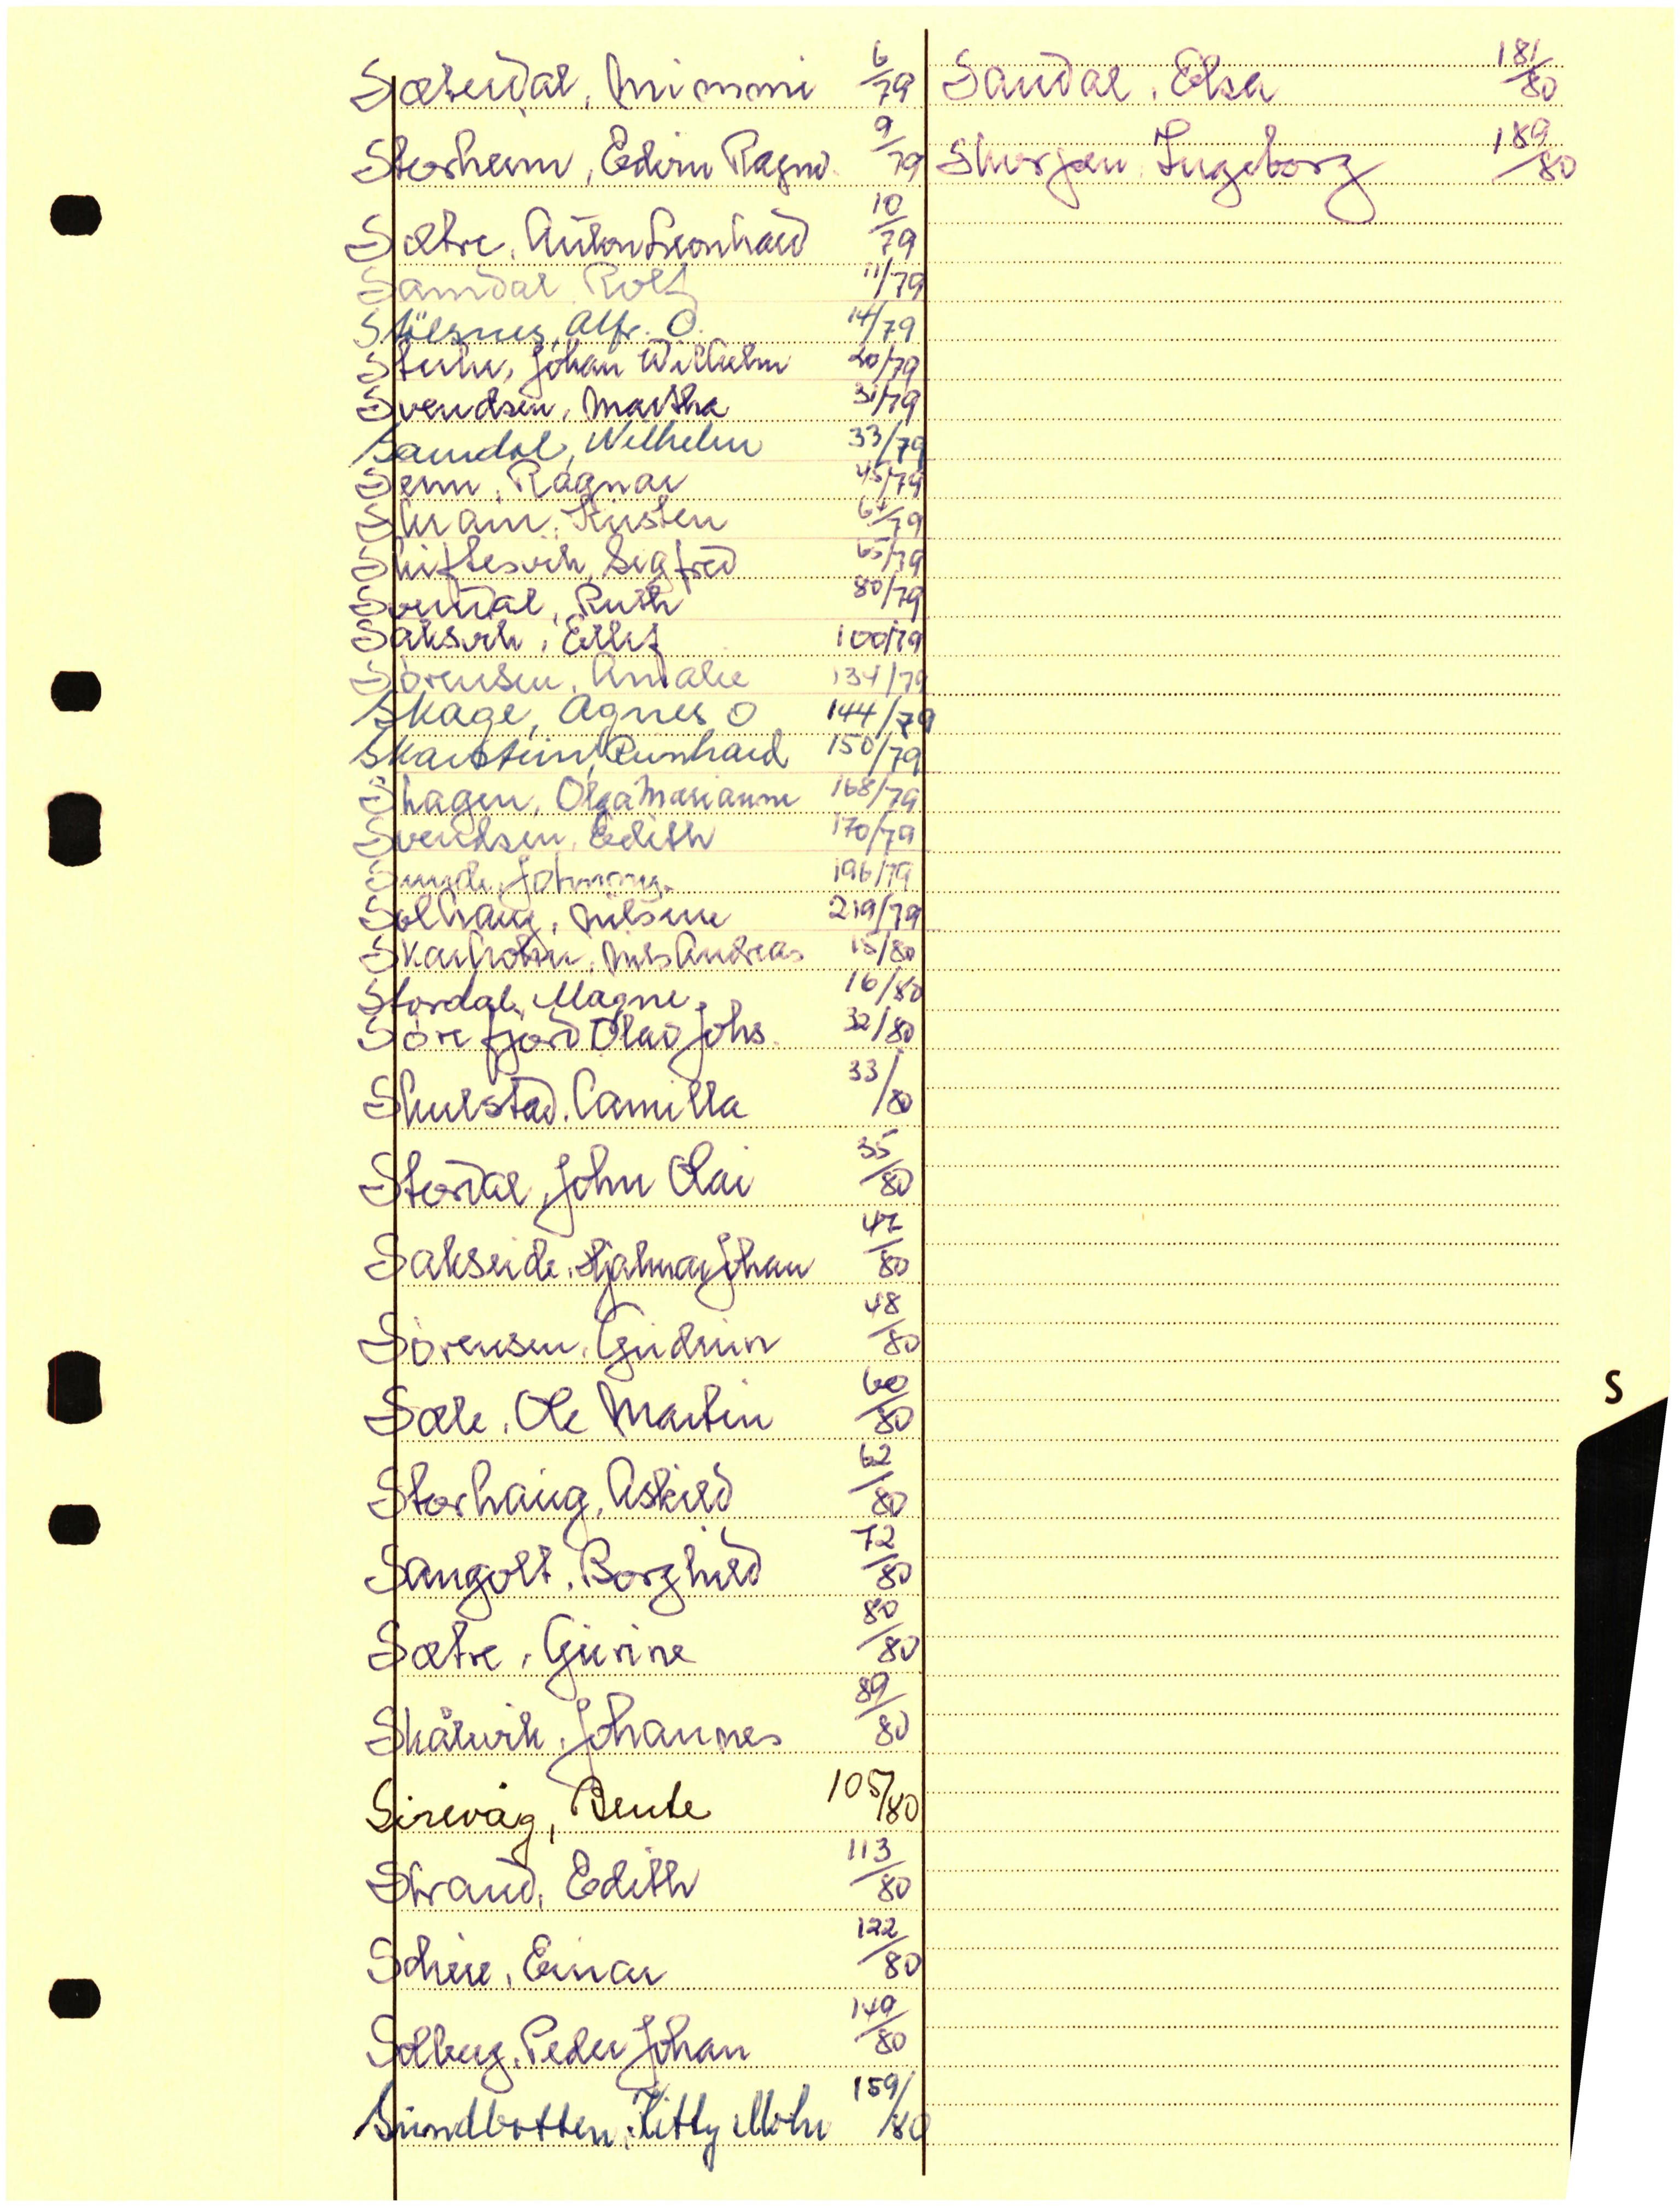 Sæterdal, Mimmi 6/79
Storheim, Edvin Ragnv. 9/79
Sætre, Anton Leonhard 10/79
Samdal Rolf 11/79
Stölsnes, Alfr. O. 14/79
Johan Wilhelm 20/79
Svendsen, Martha 31/79
Samdal, Wilhelm 33/79
Senn, Ragnar 45/79
Skram, Kirsten 64/79
Skiftesvik, Sigfred 65/79
Svendal, Ruth 80/79
Saksvik, Eilif 100/79
Sörensen, Amalie 134/79
Skage, Agnes O 144/79
Skarstein, Reinhard 150/79
Skagen, Olga Marianne 168/79
Svendsen, Edith 170/79
196/79
Solhaug, Nilsine 219/79
Skarholm, Nils Andreas 15/80
Stordal, Magne 16/80
Sörefjord Olav Johs. 32/80
Skulstad, Camilla 33/80
Stordal, John Olai 35/80
Sakseide, Hjalmar Johan 47/80
Sörensen, Gudrun 48/80
Sæle, Ole Martin 60/80
Storhaug, Askild 62/80
Sangolt, Borghild 72/80
Sætre, Gurine 80/80
Skålvik, Johannes 89/80
Sirevåg, Bente 105/80
Strand, Edith 113/80
Scheie, Einar 122/80
Solberg, Peder Johan 149/80
Sundbotten, Kitty Mohr 159/80
Sandal, Elsa 181/80
Skorpen, Ingeborg 189/80
S